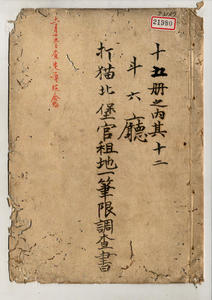 21980
十五冊之內其十二
斗六廳
打猫北堡官租地一筆限調查書